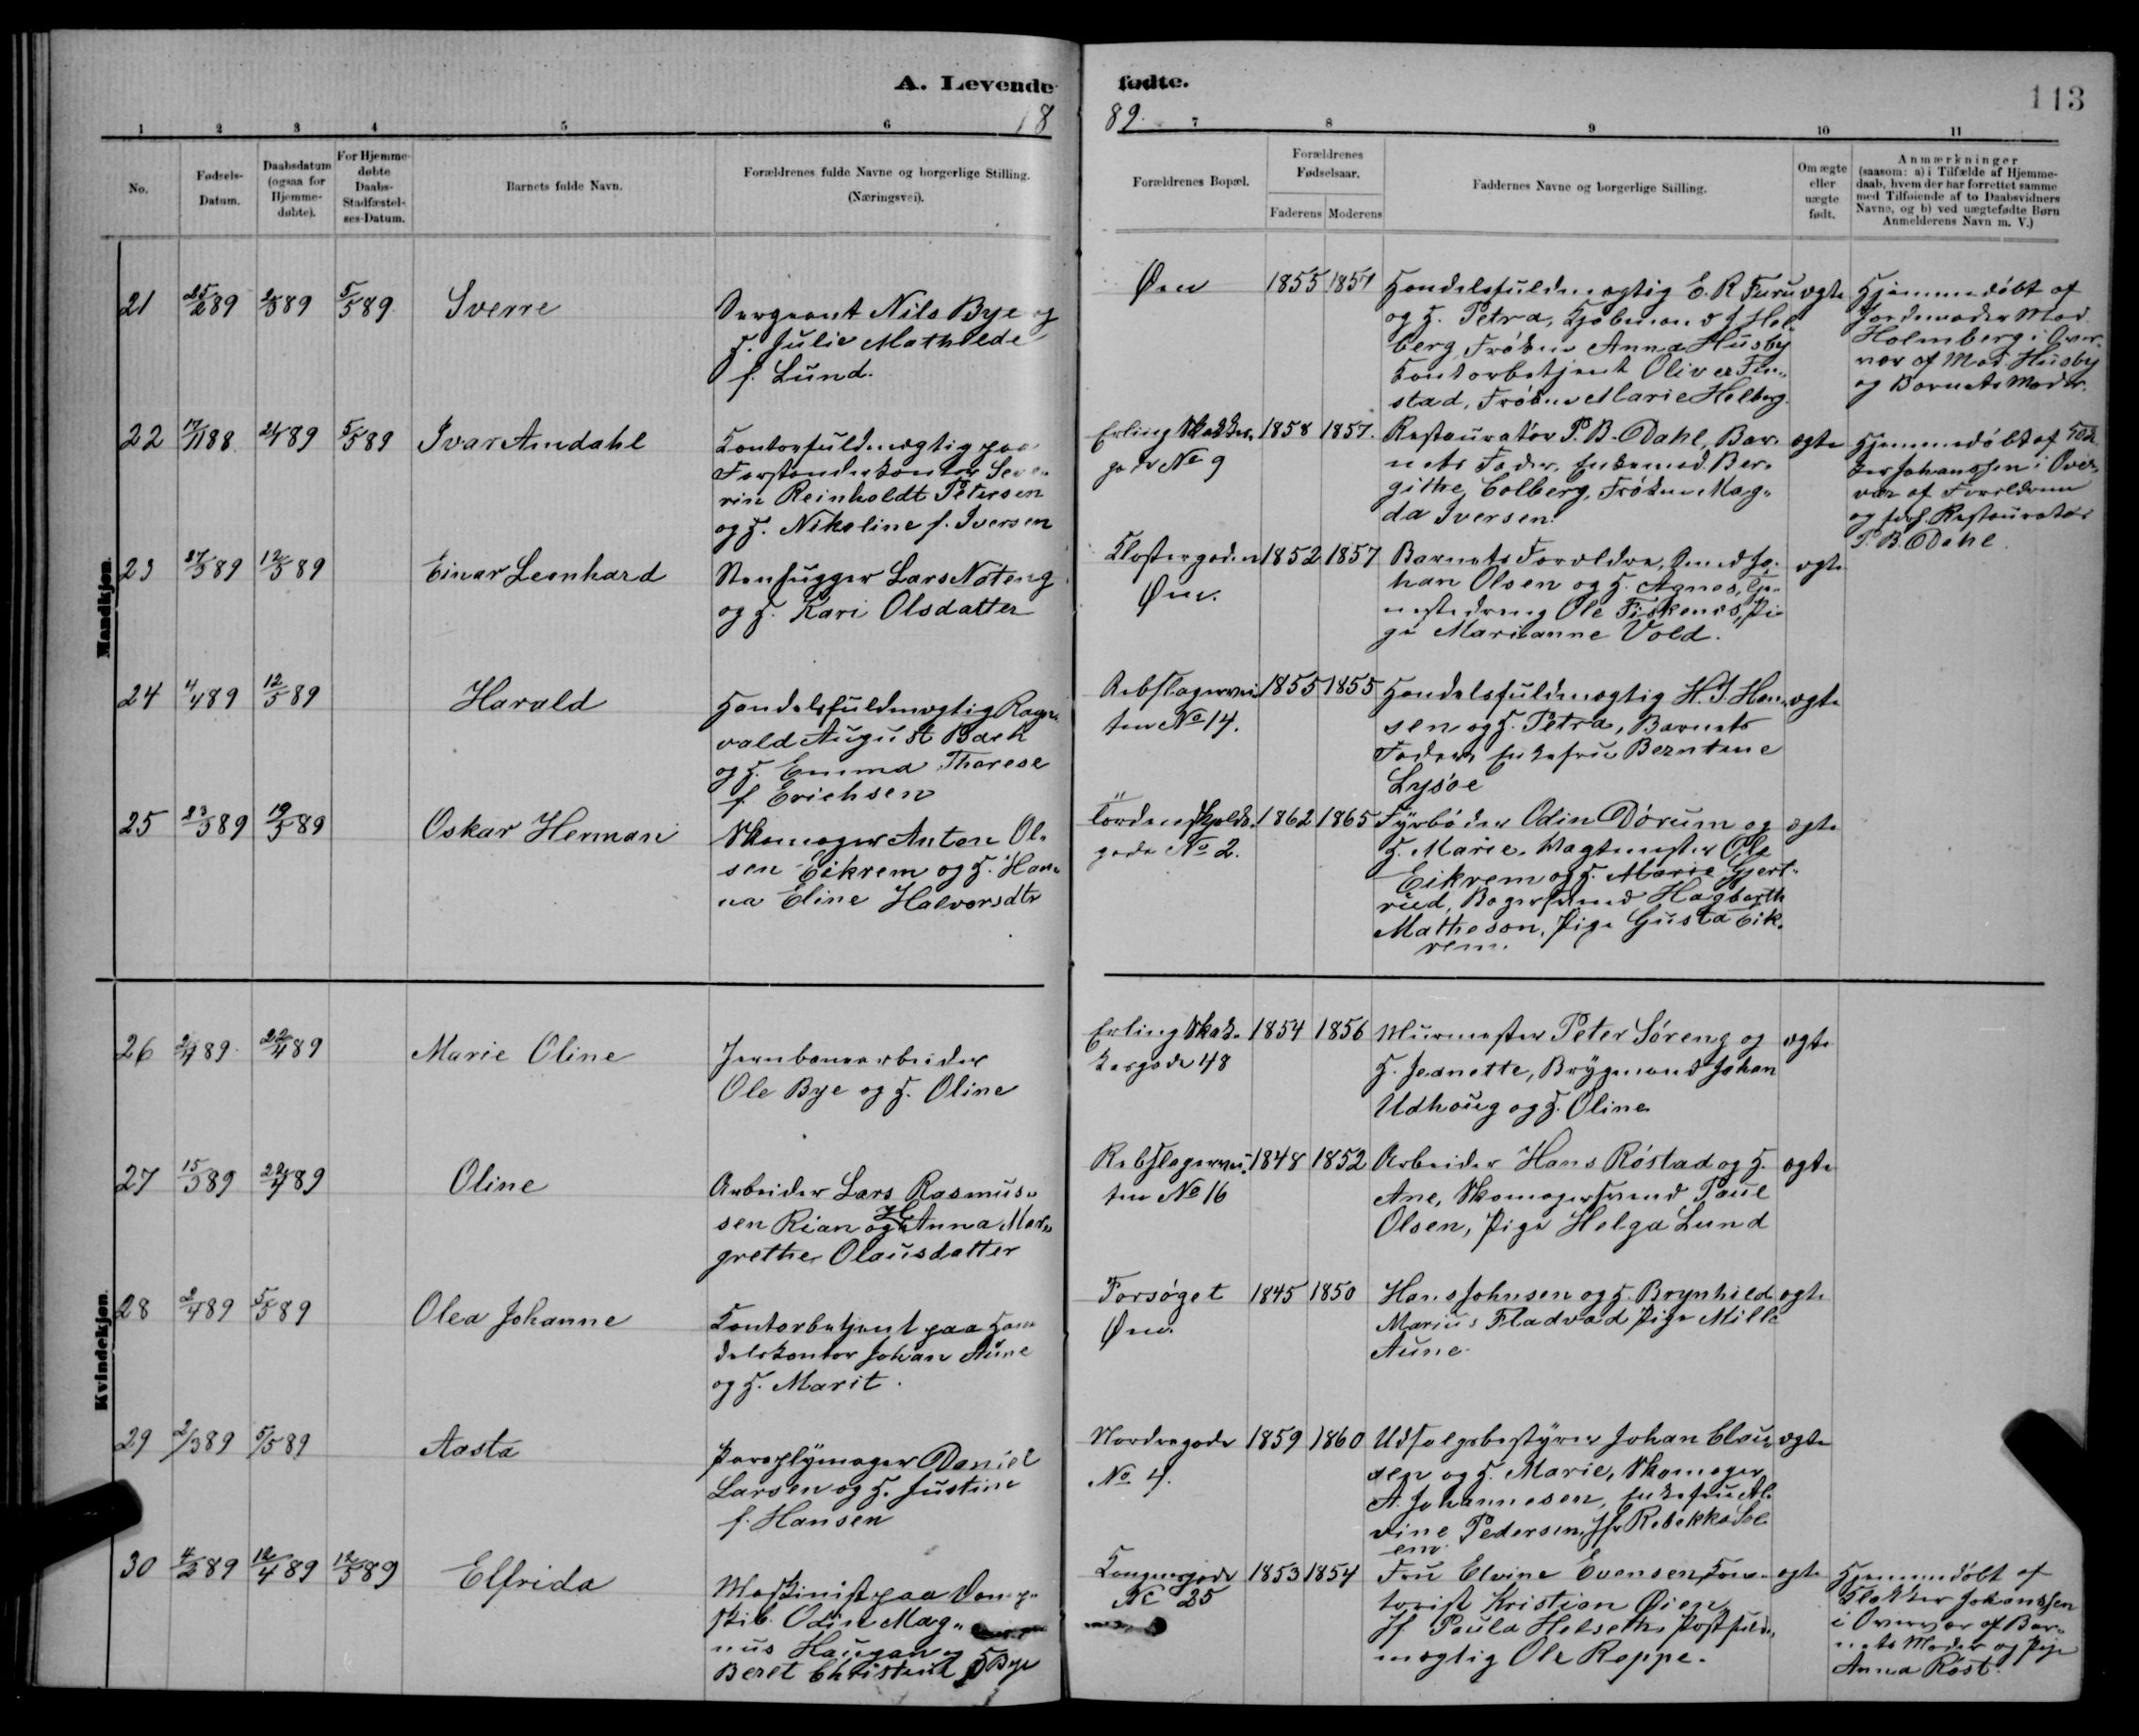 A. Levende fødte.
113
18 89.
1 2 3 4 5 6 7 8 9 10 11
No.
Fødsels-Datum.
Daabsdatum (ogsaa for Hjemme-døbte).
For Hjemme-døbte Daabs-Stadfæstel-ses-Datum.
Barnets fulde Navn.
Forældrenes fulde Navne og borgerlige Stilling.
(Næringsvei).
Forældrenes Bopæl.
Forældrenes Fødselsaar.
Faderens Moderens
Faddernes Navne og borgerlige Stilling.
Om ægte eller uægte født.
Anmærkninger
(saasom: a) i Tilfælde af Hjemme-
daab, hvem der har forrettet samme
med Tilføiende af to Daabsvidners
Navne, og b) ved uægtefødte Børn
Anmelderens Navn m. V.)
Mandkjøn.
21 25/2 89 2/3 89 5/5 89 Sverre
Sergeant Nils Bye og
H. Julie Mathilde
f. Lund.
Øen 1855 1857
Handelsfuldmægtig E. R Furu
og H. Petra, Kjøbmand J Hol-
berg, Frøken Anna Husby
Kontorbetjent Oliver Fin-
stad, Frøken Marie Holberg.
ægte
Hjemmedøbt af
Jordemoder Mad.
Holmberg i Over-
vær af Mad. Husby
og Barnets Moder.
22 17/11 88 21/4 89 5/5 89 Ivar Amdahl
Kontorfuldmægtig paa
Forstanderkontor Seve-
rin Reinholdt Petersen
og H. Nikoline f. Iversen
Erling Skakkes
gade No 9
1858 1857.
Restauratør P. B. Dahl, Bar-
nets Fader, Enkemad. Ber-
githe Colberg, Frøken Mag-
da Iversen.
ægte
Hjemmedøbt af Klok
ker Johanssen i Over-
vær af Forældrene
og Restauratør
P. B. Dahl.
23 27/3 89 12/5 89 Einar Leonhard
Stenhugger Lars Noteng
og H. Kari Olsdatter
Klostergaden
Øen.
1852 1857
Barnets Forældre, Jo-
han Olsen og H. Agnes, Tje-
nestedreng Ole Fiskenes, Pi-
ge Marianne Vold.
ægte
24 4/4 89 12/5 89 Harald
Handelsfuldmægtig Ragn-
vald August Bach
og H. Emma Therese
f. Erichsen
Rebslagervei-
ten No 14.
1855 1855
Handelsfuldmægtig H. J. Han-
sen og H. Petra, Barnets
Fader, Enkefru Berntine
Lysøe
ægte
25 23/3 89 19/5 89 Oskar Herman
Skomager Anton Ol-
sen Eikrem og H. Han-
na Eline Halvorsdtr
Tordenskjolds-
gade No 2.
1862 1865
Fyrbøder Odin Dørum og
H. Marie, Vagtmester Ole
Eikrem og H. Marie Gjert-
rud, Bagersvend Hagbarth
Matheson, Pige Gusta Eik-
rem.
ægte
Kvindekjøn.
26 2/4 89 22/4 89 Marie Oline
Jernbanearbeider
Ole Bye og H. Oline
Erling Skak-
kesgade 48
1854 1856
Murmester Peter Søreng og
H. Jeanette, Brygmand Johan
Udhoug og H. Oline
ægte
27 15/3 89 22/4 89 Oline
Arbeider Lars Rasmus-
sen Rian og H. Anna Mar-
grethe Olausdatter
Rebslagervei-
ten No 16
1848 1852
Arbeider Hans Røstad og H.
Ane, Skomagersvend Paul
Olsen, Pige Helga Lund
ægte
28 2/4 89 5/5 89 Olea Johanne
Kontorbetjent paa Han
delskontor Johan Aune
og H. Marit.
Forsøget
Øen.
1845 1850
Hans Johnsen og H. Brynhild
Marius Fladvad, Pige Milla
Aune.
ægte
29 2/3 89 5/5 89 Aasta
Paraplymager Daniel
Larsen og H. Justine
f. Hansen
Nordregade
No 4.
1859 1860
Udsalgsbestyrer Johan Clau-
sen og H. Marie, Skomager
A. Johannesen, Enkefru Al-
vine Pedersen, Jfr Rebekka Sol
em.
ægte
30 4/2 89 12/4 89 12/5 89 Elfrida
Maskinist paa Damp-
skib. Odin Mag-
nus Haugan og
Beret Christine f Bye
Kongensgade
No 25
1853 1854
Fru Elvine Evensen, Kon-
torist Kristian Øien,
Jf. Paula Helseth, Postfuld-
mægtig Ole Reppe.
ægte
Hjemmedøbt af
Klokker Johanssen
i Overvær af Bar-
nets Moder og Pige
Anna Røst.